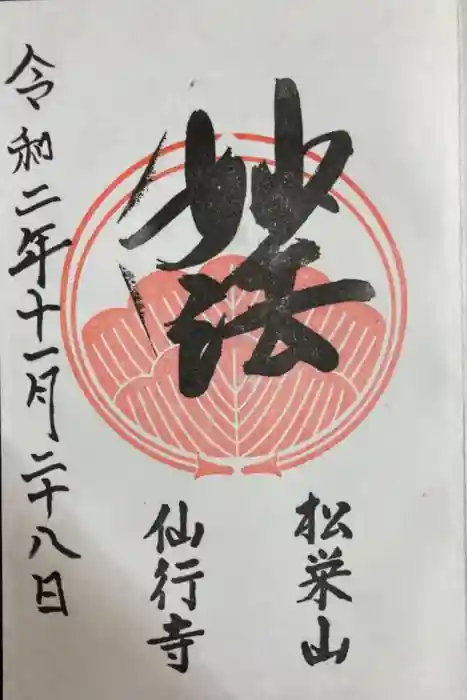 妙法
松栄山
仙行寺
令和二年十一月二十八日